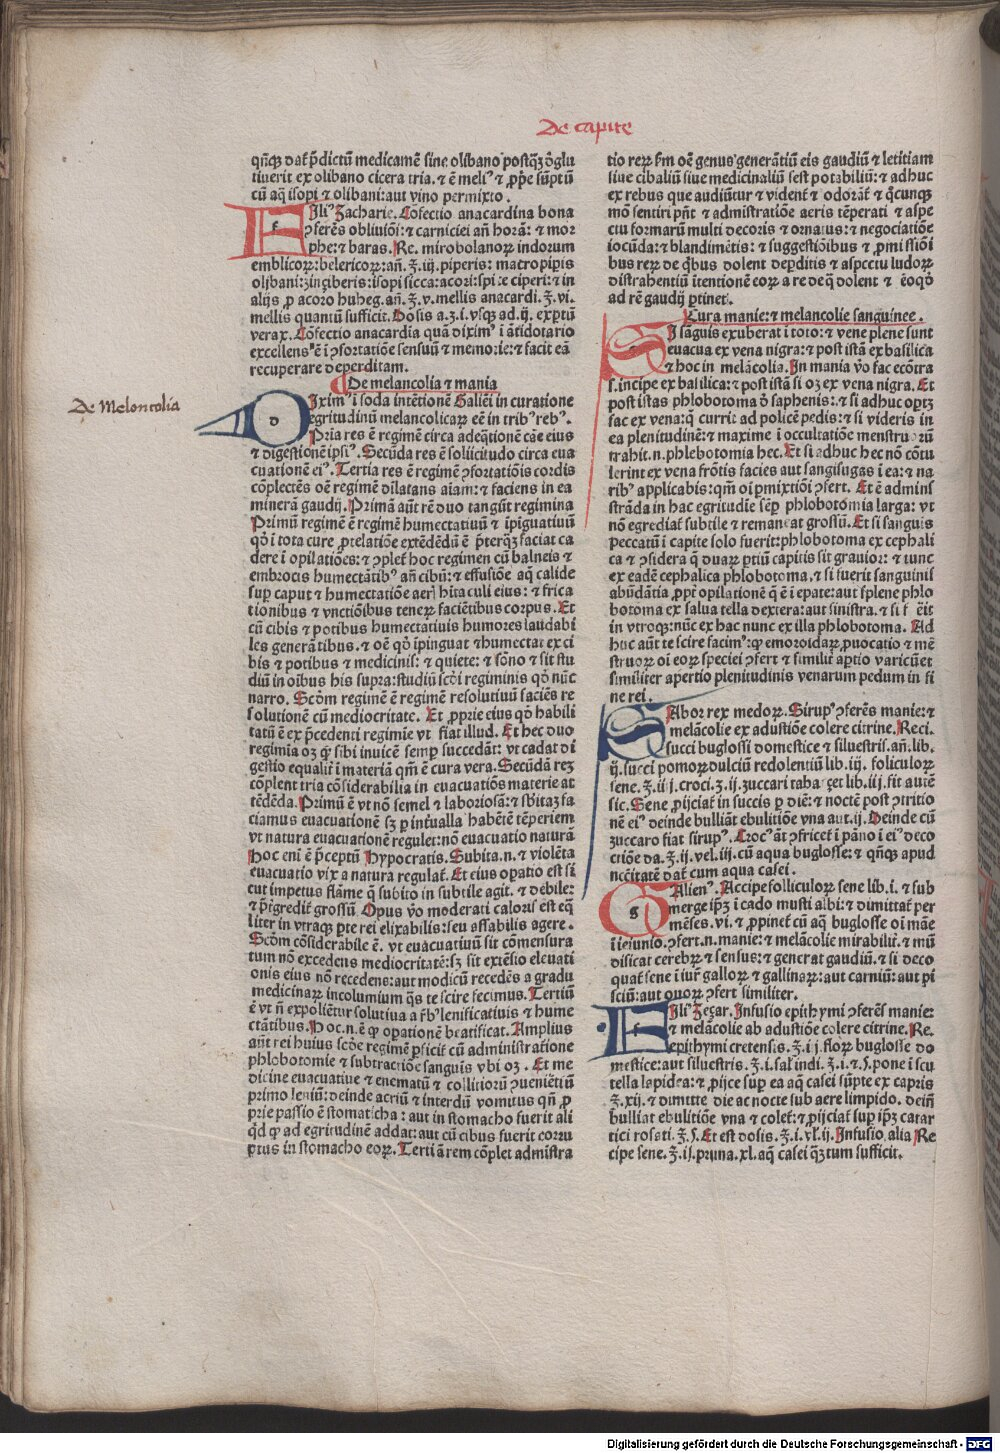 De capite
qñqꝫ dat̃ p̃dictũ medicamẽ sine olibano postqꝫ õglu
tiuerit ex olibano cicera tria. ⁊ ẽ meliꝰ ⁊ ꝓpẽ sũptũ
cũ aq̃ isopi ⁊ olibani: aut vino permixto.
FIliꝰ Zacharie. Cõfectio anacardina bona
ꝯferẽs obliuiõi: ⁊ carniciei añ horã: ⁊ mor
phe: ⁊ baras. Re. mirobolanoꝝ indorum
emblicoꝝ: belericoꝝ: añ. ʒ. iij. piperis: macropip̱is
olibani: zinziberis: isopi sicca: acori: spice ciperi: ⁊ in
alijs ꝓ acoro huheg. añ. ʒ. v. mellis anacardi. ʒ. vi.
mellis quantũ sufficit. Dosis a. ʒ. i. vsqꝫ ad. ij. exp̱tũ
verax. Cõfectio anacardia quã diximꝰ i ãtidotario
excellensꝰ ẽ i ꝯfortatiõe sensuũ ⁊ memorie: ⁊ facit eã
recuperare deperditam.
De melancolia ⁊ mania
De Meloncolia
DIximꝰ i soda intẽtionẽ Galiẽi in curatione
egritudinũ melancolicaꝝ eẽ in tribꝰ rebꝰ.
Pria res ẽ regimẽ circa adeq̃tionẽ cãe eius
⁊ digestionẽ ipsiꝰ. Secũda res ẽ sollicitudo circa eua
cuationẽ eiꝰ. Tertia res ẽ regimẽ ꝯfortatiõis cordis
cõplectẽs oẽ regimẽ dilatans aiam: ⁊ faciens in ea
minerã gaudij. Primã aũt rẽ duo tangũt regimina
Primũ regimẽ ẽ regimẽ humectatiuũ ⁊ ipiguatiuũ
qõ i tota cure ꝓtelatiõe extẽdẽdũ ẽ p̃terqꝫ faciat ca
dere i opilatiões: ⁊ ꝯplet̃ hoc regimen cũ balneis ⁊
embrocis humectãtibꝰ añ cibũ: ⁊ effusiõe aq̃ calide
suꝑ caput ⁊ humectatiõe aeris hitaculi eius: ⁊ frica
tionibus ⁊ vnctiõibus teneꝝ faciẽtibus corpus. Et
cũ cibis ⁊ potibus humectatiuis humores laudabi
les generãtibus. ⁊ oẽ qõ ipinguat ⁊ humectat ex ci
bis ⁊ potibus ⁊ medicinis: ⁊ quiete: ⁊ sõno ⁊ sit stu
diũ in oĩbus his supra: studiũ scõi regiminis qõ nũc
narro. Scõm regimẽ ẽ regimẽ resolutiuũ faciẽs re
solutionẽ cũ mediocritate. Et ꝓprie eius qõ habili
tatũ ẽ ex p̃cedenti regimie vt fiat illud. Et hec duo
regimia oꝫ q̃ sibi inuicẽ semꝑ succedãt: vt cadat di
gestio equalit̃ i materiã qm̃ ẽ cura vera. Secũdã reꝫ
cõplent tria cõsiderabilia in euacuatiõs materie at
tẽdẽda. Primũ ẽ vt nõ semel ⁊ laboriosã: ⁊ sb̃itaꝫ fa
ciamus euacuationẽ sꝫ ꝑ int̃ualla habẽtẽ tẽperiem
vt natura euacuationẽ regulet: nõ euacuatio naturã
Hoc eni ẽ p̃ceptũ Hypocratis. Subita. n. ⁊ violẽta
euacuatio vix a natura regulat̃. Et eius oꝑatio est si
cut impetus flãme q̃ subito in subtile agit. ⁊ debile:
⁊ p̃tigredit̃ grossũ Opus v̊o moderati caloris est eq̃
liter in vtraqꝫ ꝑte rei elixabilis: seu assabilis agere.
Scõm cõsiderabile ẽ. vt euacuatiuũ sit cõmensura
tum nõ excedens mediocritatẽ: sꝫ sit extẽsio eleuati
onis eius nõ recedens: aut modicũ recedẽs a gradu
medicinaꝝ incolumium q̃s te scire fecimus. Tertiũ
ẽ vt ñ expoliẽtur solutiua a fb̃ꝰ lenificatiuis ⁊ hume
ctãtibus. Hoc. n. ẽ qꝫ oꝑationẽ beatificat. Amplius
aũt rei huius scõe regimẽ ꝑficit̃ cũ administratione
phlobotomie ⁊ subtractiõe sanguis vbi oꝫ. Et me
dicine euacuatiue ⁊ enematũ ⁊ collirioꝝ ꝯueniẽtiũ
primo leniũ: deinde acriũ ⁊ interdũ vomitus qñ ꝓ
prie passio ẽ stomaticha: aut in stomacho fuerit ali
q̃d qꝫ ad egritudinẽ addat: aut cũ cibus fuerit corru
ptus in stomacho eoꝝ. Tertiã rem cõplet admistra
tio reꝝ sm̃ oẽ genus generãtiũ eis gaudiũ ⁊ letitiam
siue cibaliũ siue medicinaliũ seẽt potabiliũ: ⁊ adhuc
ex rebus que audiũtur ⁊ vident̃ ⁊ odorãt̃ ⁊ q̊cunqꝫ
mõ sentiri pñt ⁊ admistratiõe aeris tẽperati ⁊ aspe
ctu formarũ multi decoris ⁊ ornatus: ⁊ negociatiõe
iocũda: ⁊ blandimẽtis: ⁊ suggestiõibus ⁊ ꝓmissiõi
bus reꝝ de q̃bus dolent deꝑditis ⁊ aspectu ludoꝝ
distrahentiũ itentionẽ eoꝝ a re de q̃ dolent ⁊ ẽoqõ
ad rẽ gaudij ꝑtinet.
Cura manie: ⁊ melancolie sanguinee.
SI sãguis exuberat i toto: ⁊ vene plene sunt
euacua ex vena nigra: ⁊ post istã ex basilica
⁊ hoc in melãcolia. In mania v̊o fac ecõtra
s. incipe ex basilica: ⁊ post istã si oꝫ ex vena nigra. Et
post istas phlobotoma õ saphenis: ⁊ si adhuc oꝑtꝫ
fac ex vena: q̃ currit ad policẽ pedis: ⁊ si videris in
ea plenitudinẽ: ⁊ maxime i occultatiõe menstruoꝝ
trahit. n. phlebotomia hec. Et si adhuc hec nõ cõtu
lerint ex vena frõtis facies aut sangisugas i ea: ⁊ na
ribꝰ applicabis: qm̃ oi ꝑmixtiõi ꝯfert. Et ẽ adminſ
strãda in hac egritudie sẽꝑ phlobotomia larga: vt
nõ egrediat̃ subtile ⁊ remaneat grossũ. Et si sanguis
peccatũ i capite solo fuerit: phlobotoma ex cephali
ca ⁊ ꝯsidera q̃ duaꝝ ꝑtiũ capitis sit grauior: ⁊ tunc
ex eadẽ cephalica phlobotoma. ⁊ si fuerit sanguinis
abũdãtia ꝓpt̃ opilationẽ q̃ ẽ i epate: aut splene phlo
botoma ex saluatella dextera: aut sinistra. ⁊ si fuẽit
in vtroqꝫ: nũc ex hac nunc ex illa phlobotoma. Ad
huc aũt te scire facimꝰ: qꝫ emoroidaꝝ ꝓuocatio ⁊ mẽ
struoꝝ oi eoꝝ speciei ꝯfert ⁊ similit̃ aꝑtio varicũ et
similiter apertio plenitudinis venarum pedum in fi
ne rei.
SAbor rex medoꝝ. Sirupꝰ ꝯferẽs manie: ⁊
melãcolie ex adustiõe colere citrine. Reci.
succi buglossi domestice ⁊ siluestris. añ. lib.
ij. succi pomoꝝ dulciũ redolentiũ lib. iij. foliculoꝝ
sene. ʒ. iij. croci. ʒ. ij. zuccari tabarzet lib. iij. fit autẽ
sic. Sene ꝓijciat̃ in succis ꝑ diẽ: ⁊ noctẽ post ꝯtritio
nẽ eiꝰ deinde bulliãt ebulitiõe vna aut. ij. Deinde cũ
zuccaro fiat sirupꝰ. Crocꝰ aũt ꝯfricet̃ i pãno i eiꝰ deco
ctiõe da. ʒ. ij. vel. iij. cũ aqua buglosse: ⁊ qñqꝫ apud
nccitatẽ dat̃ cum aqua casei.
GAlienꝰ. Accipe folliculoꝝ sene lib. i. ⁊ sub
merge ip̃ꝫ i cado musti albi: ⁊ dimittat̃ per
mẽses. vi. ⁊ ꝓpinet̃ cũ aq̃ buglosse oi mãe
i ieiunio. ꝯfert. n. manie: ⁊ melãcolie mirabilit̃. ⁊ mũ
dificat cerebꝝ ⁊ sensus: ⁊ generat gaudiũ. ⁊ si deco
quat̃ sene i iur̃ galloꝝ ⁊ gallinaꝝ: aut carniũ: aut pi
sciũ: aut ouoꝝ ꝯfert similiter.
FIliꝰ Zezar. Infusio epithymi ꝯferẽs manie:
⁊ melãcolie ab adustiõe colere citrine. Re.
epithymi cretensis. ʒ. ij. floꝝ buglosse do
mestice: aut siluestris. ʒ. i. sal̃ indi. ʒ. i. ⁊. s. pone i scu
tella lapidea: ⁊ ꝓijce suꝑ ea aq̃ casei sũpte ex capris
ʒ. xij. ⁊ dimitte die ac nocte sub aere limpido. deiñ
bulliat ebulitiõe vna ⁊ colet̃: ⁊ ꝓijciat̃ suꝑ ip̃ꝫ catar
tici rosati. ʒ. s. Et est dosis. ʒ. i. vl̃. ij. Infusio alia Re
cipe sene. ʒ. ij. pruna. xl. aq̃ casei q̃ꝫtum sufficit.
Digitalisierung gefördert durch die Deutsche Forschungsgemeinschaft - DFG